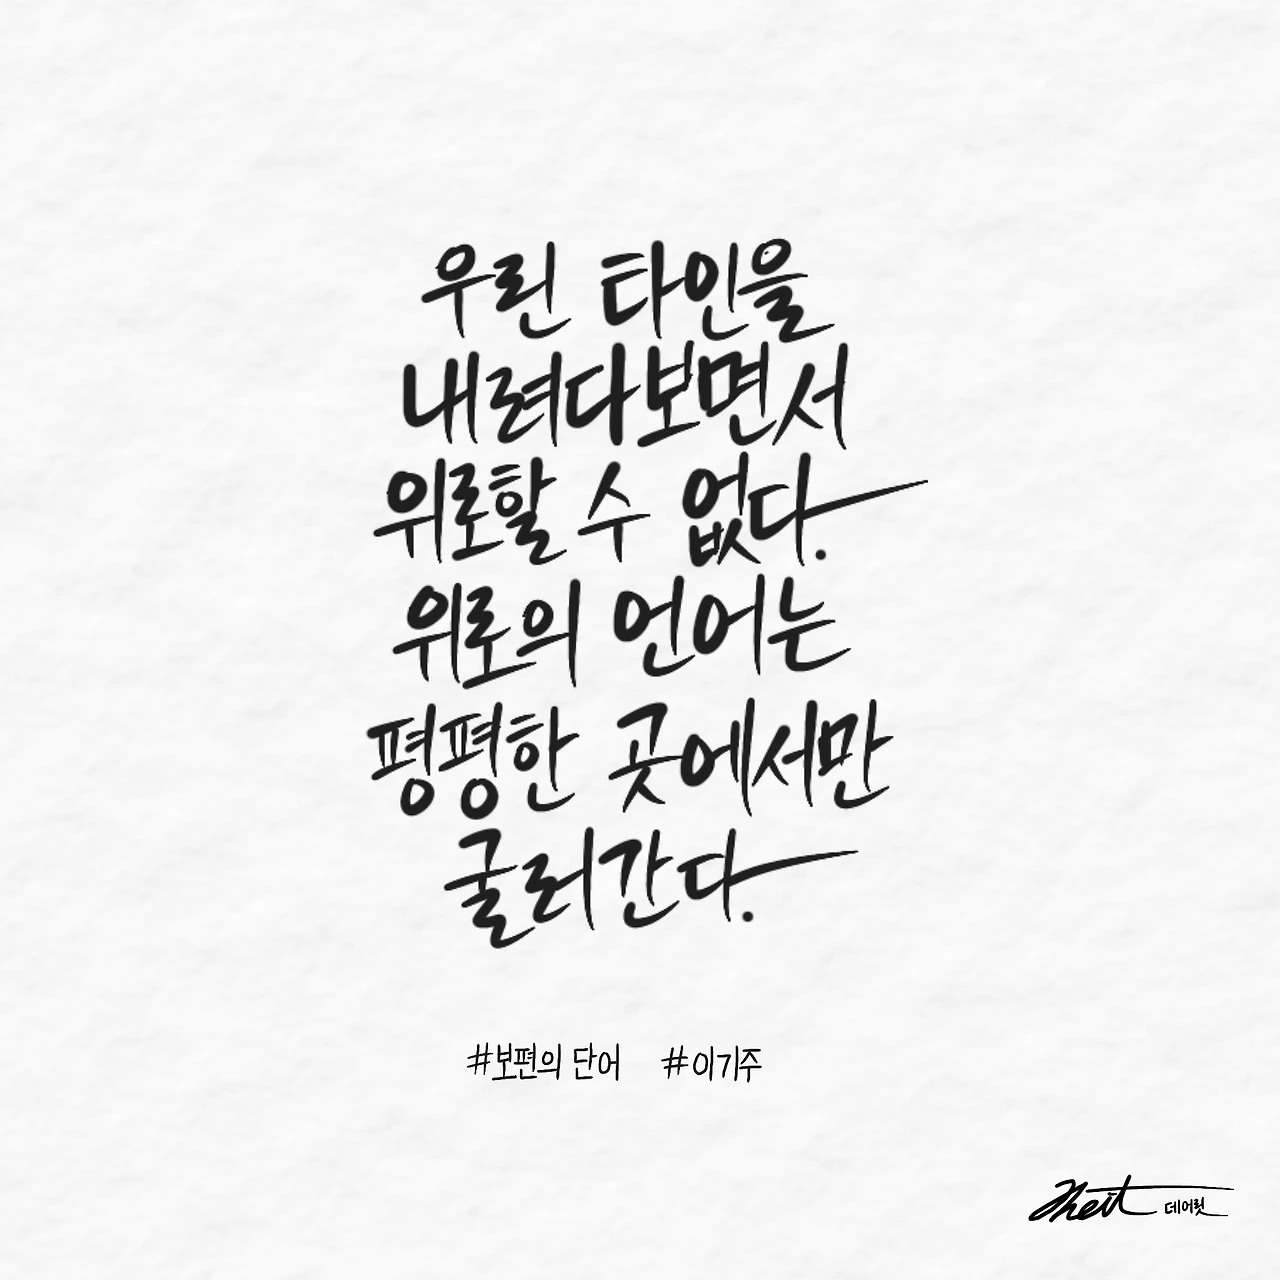 우린 타인을
내려다보면서
위로할 수 없다.
위로의 언어는
평평한 곳에서만
굴러간다.
#보편의 단어 #이기주
데어릿